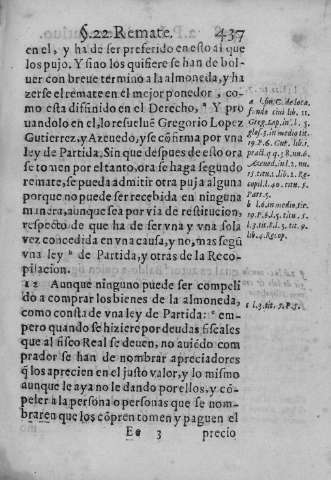 §.22 Remate. 437
en el, y ha de ser preferido en esto al que
los pujo. Y sino los quisiere se han de bol-
uer con breue termino a la almoneda, y ha
zerse el remate en el mejor ponedor, co-
mo esta disfinido en el Derecho, ª Y pro
uandolo en el, lo resuelue Gregorio Lopez
Gutierrez, y Azeuedo, y se cõfirma por vna
ley de Partida. Sin que despues de esto ora
se tomen por el tanto, ora se haga segundo
remate, se pueda admitir otra puja alguna
porque no puede ser recebida en ninguna
manera, aunque sea por via de restitucion,
respecto de que ha de ser vna y vna sola
vez concedida en vna causa, y no, mas segũ
vna ley ᵇ de Partida, y otras de la Reco-
pilacion.
12 Aunque ninguno puede ser compeli
do a comprar los bienes de la almoneda,
como consta de vna ley de Partida: ᶜ em-
pero quando se hiziere por deudas fiscales
que al fisco Real se deuen, no auiẽdo com-
prador se han de nombrar apreciadores
q̃ los aprecien en el justo valor, y lo mismo
aunque le aya no le dando por ellos, y cõ-
peler a la persona o personas que se nom-
braren que los cõpren tomen y paguen el
Ee 3 precio
fundo ciui lib. 11.
Greg. Lop. in l. 3
glos. 3. in medio tit.
19. P. 6. Gut. lib. 1.
Azeued. in l. 2. nu.
15. titu. 210. 2. Re-
copil. l. 40. titu. 5.
Part. 5.
b l. 6. in medio tit.
19. P. 6. l. 5. titu. 5.
lib. 4. Recop.
c l. 3. tit. 7. P. 5.